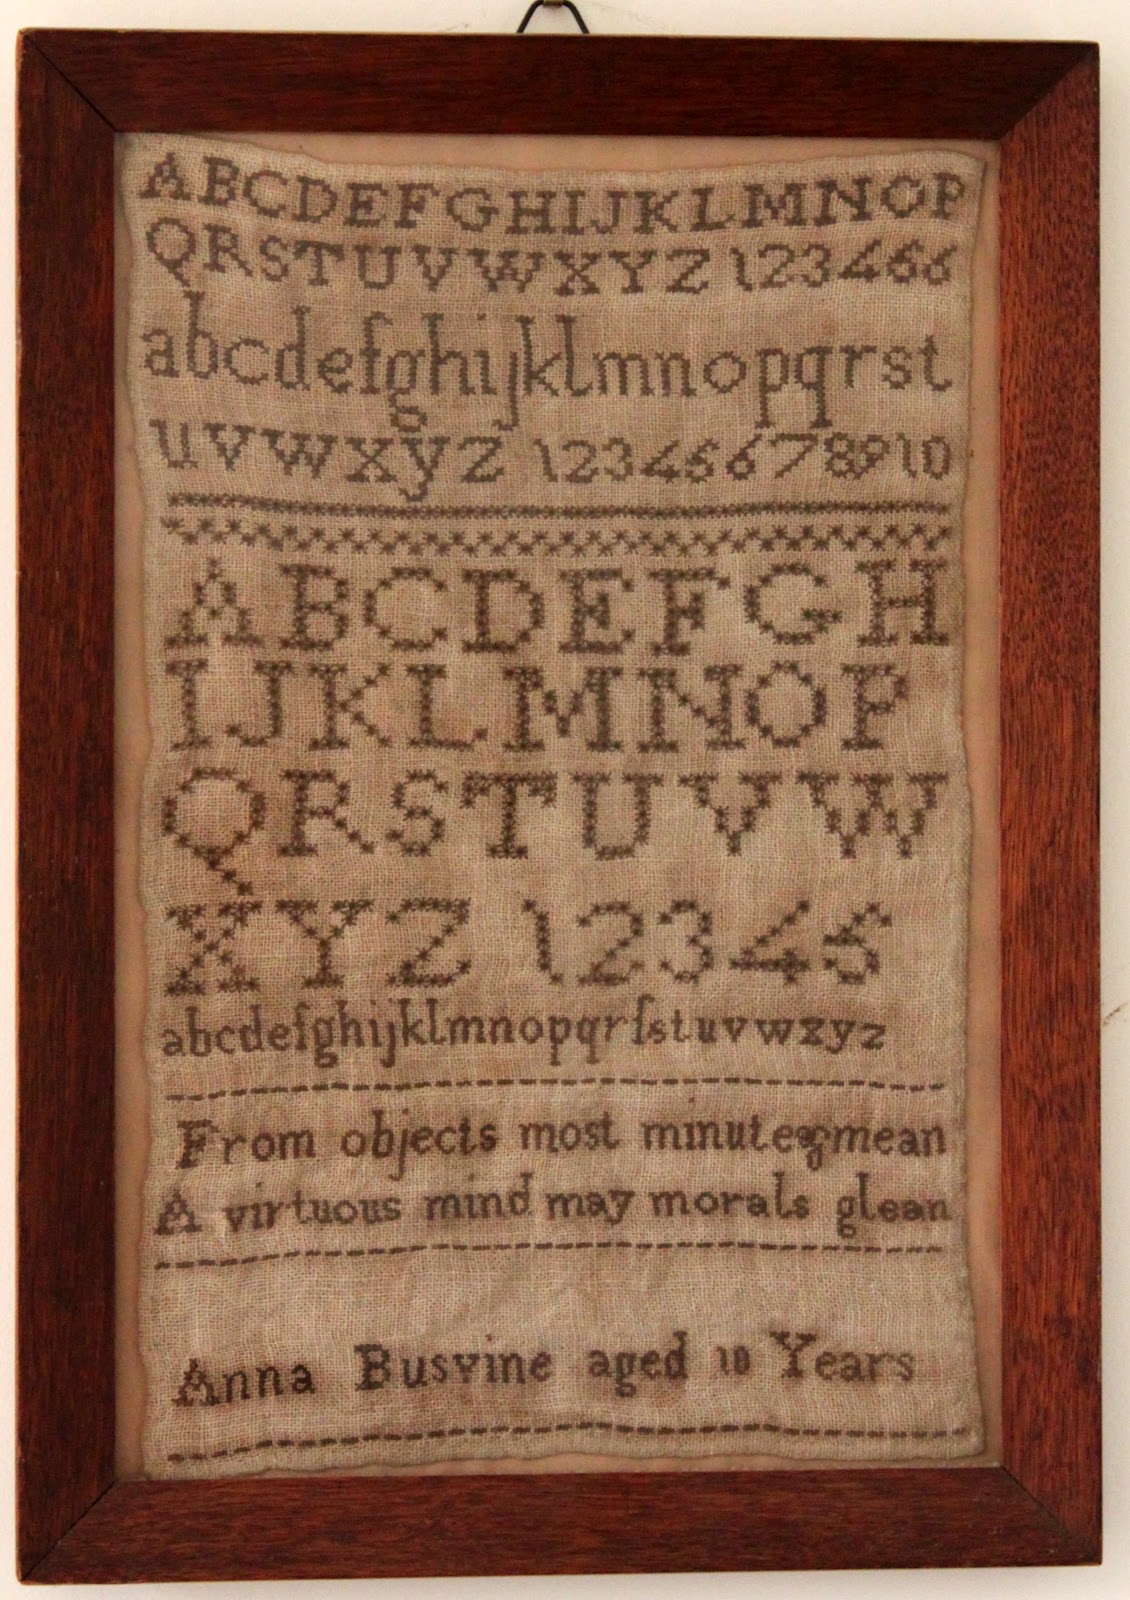 ABCDEFGHIJKLMNOP
QRSTUVWXYZ 123456
abcdefghijklmnopqrst
uvwxyz 12345678910
ABCDEFGH
IJKLMNOP
QRSTUVW
XYZ 12345
abcdefghijklmnopqrſstuvwxyz
From objects most minute & mean
A virtuous mind may morals glean
Anna Busvine aged 10 Years